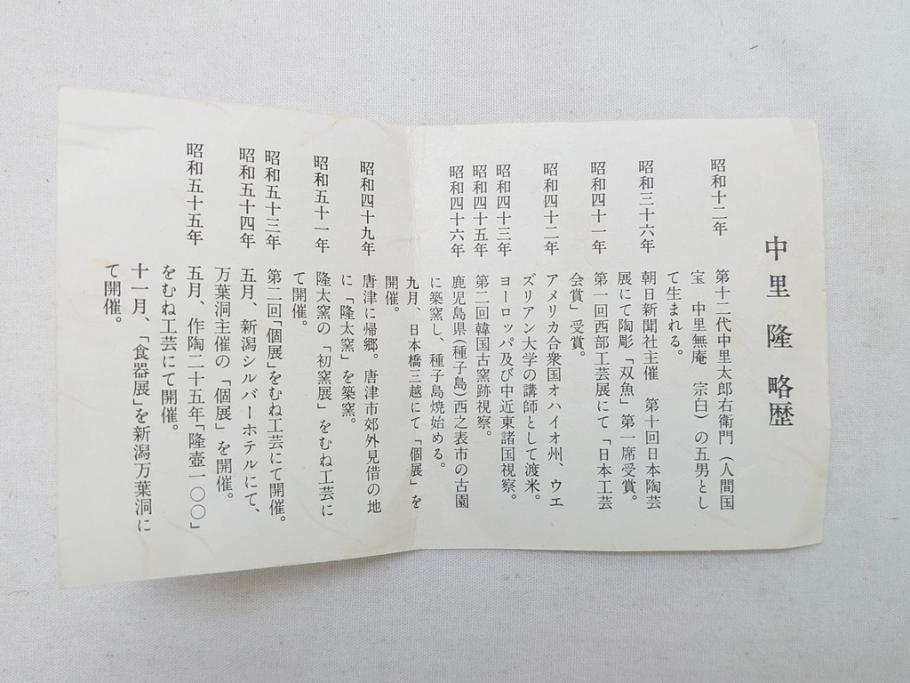 中里 隆 略歴
昭和十二年 第十二代中里太郎右衛門（人間国
宝 中里無庵 宗白）の五男とし
て生まれる。
昭和三十六年 朝日新聞社主催 第十回日本陶芸
展にて陶彫「双魚」第一席受賞。
昭和四十一年 第一回西部工芸展にて「日本工芸
会賞」受賞。
昭和四十二年 アメリカ合衆国オハイオ州、ウエ
ズリアン大学の講師として渡米。
昭和四十三年 ヨーロッパ及び中近東諸国視察。
昭和四十五年 第二回韓国古窯跡視察。
昭和四十六年 鹿児島県（種子島）西之表市の古園
に築窯し、種子島焼始める。
九月、日本橋三越にて「個展」を
開催。
昭和四十九年 唐津に帰郷。唐津市郊外見借の地
に「隆太窯」を築窯。
昭和五十一年 隆太窯の「初窯展」をむね工芸に
て開催。
昭和五十三年 第二回「個展」をむね工芸にて開催。
昭和五十四年 五月、新潟シルバーホテルにて、
万葉洞主催の「個展」を開催。
昭和五十五年 五月、作陶二十五年「隆壺一〇〇」
をむね工芸にて開催。
十一月、「食器展」を新潟万葉洞に
て開催。